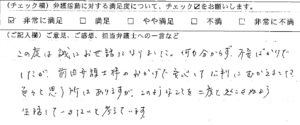 (チェック欄) 弁護活動に対する満足度について、チェック☑をお願いします。
☑ 非常に満足 □ 満足 □ やや満足 □ 不満 □ 非常に不満
(ご記入欄) ご意見、ご感想、担当弁護士への一言など
この度は誠にお世話になりました。何も分からず、不安ばかりで
したが、前田弁護士様のおかげで安心して裁判にむかえました。
色々と思う所はありますが、このようなことを二度と起こさぬよう
生活していきたいと考えています。